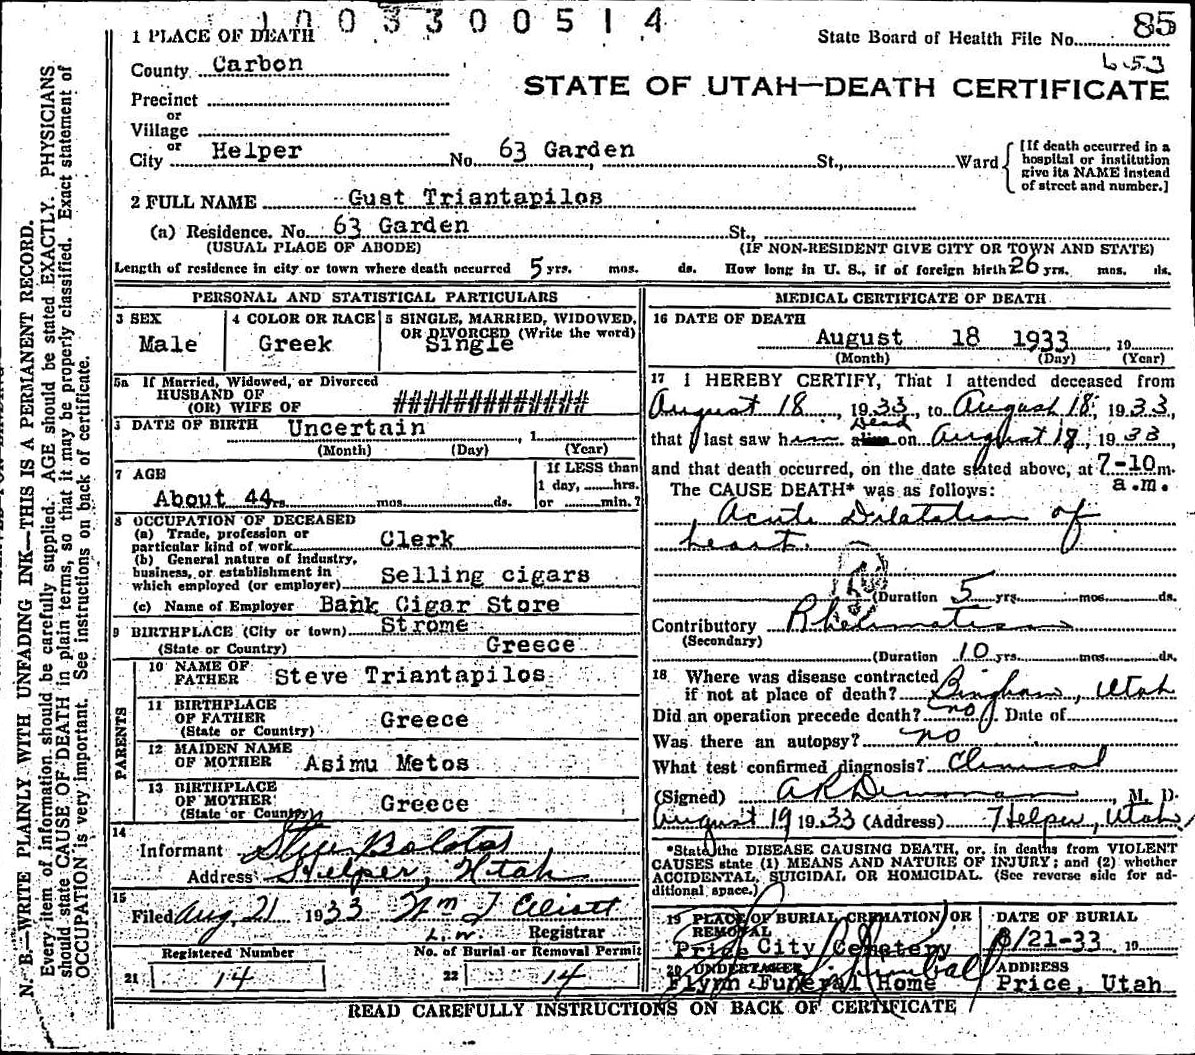 1003300514
85
1 PLACE OF DEATH
State Board of Health File No.
County Carbon
653
STATE OF UTAH—DEATH CERTIFICATE
Precinct
or
Village
or
City Helper No. 63 Garden St., Ward
[If death occurred in a
hospital or institution
give its NAME instead
of street and number.]
2 FULL NAME Gust Triantapilos
(a) Residence. No. 63 Garden St.,
(USUAL PLACE OF ABODE) (IF NON-RESIDENT GIVE CITY OR TOWN AND STATE)
Length of residence in city or town where death occurred 5 yrs. mos. ds. How long in U. S., if of foreign birth 26 yrs. mos. ds.
PERSONAL AND STATISTICAL PARTICULARS
3 SEX
Male
4 COLOR OR RACE
Greek
5 SINGLE, MARRIED, WIDOWED,
OR DIVORCED (Write the word)
Single
5a If Married, Widowed, or Divorced
HUSBAND OF
(OR) WIFE OF #############
DATE OF BIRTH Uncertain , 1
(Month) (Day) (Year)
7 AGE
About 44 yrs. mos. ds.
If LESS than
1 day, hrs.
or min.?
8 OCCUPATION OF DECEASED
(a) Trade, profession or
particular kind of work Clerk
(b) General nature of industry,
business, or establishment in
which employed (or employer) Selling cigars
(c) Name of Employer Bank Cigar Store
9 BIRTHPLACE (City or town) Strome
(State or Country) Greece
PARENTS
10 NAME OF
FATHER Steve Triantapilos
11 BIRTHPLACE
OF FATHER
(State or Country) Greece
12 MAIDEN NAME
OF MOTHER Asimu Metos
13 BIRTHPLACE
OF MOTHER
(State or Country) Greece
14
Informant
Address Helper, Utah
15
Filed Aug. 21 1933 Wm J Elliott
Registrar
Registered Number
21 14
No. of Burial or Removal Permit
22 14
MEDICAL CERTIFICATE OF DEATH
16 DATE OF DEATH
August 18 1933 , 19
(Month) (Day) (Year)
17 I HEREBY CERTIFY, That I attended deceased from
August 18, 1933, to August 18, 1933,
Dead
that I last saw him alive on August 18, 1933
and that death occurred, on the date stated above, at 7-10 m.
a.m.
The CAUSE DEATH* was as follows:
Acute Dilatation of
heart.
(Duration 5 yrs. mos. ds.
Contributory Rheumatism
(Secondary)
(Duration 10 yrs. mos. ds.
18 Where was disease contracted
if not at place of death? Bingham, Utah
Did an operation precede death? no Date of
Was there an autopsy? no
What test confirmed diagnosis? Clinical
(Signed) , M. D.
August 19 1933 (Address) Helper, Utah
*State the DISEASE CAUSING DEATH, or, in deaths from VIOLENT
CAUSES state (1) MEANS AND NATURE OF INJURY; and (2) whether
ACCIDENTAL, SUICIDAL OR HOMICIDAL. (See reverse side for ad-
ditional space.)
19 PLACE OF BURIAL CREMATION OR
REMOVAL
Price City Cemetery
DATE OF BURIAL
8/21-33 19
20 UNDERTAKER
Flynn Funeral Home
ADDRESS
Price, Utah
READ CAREFULLY INSTRUCTIONS ON BACK OF CERTIFICATE
N. B.—WRITE PLAINLY WITH UNFADING INK—THIS IS A PERMANENT RECORD.
Every item of information should be carefully supplied. AGE should be stated EXACTLY. PHYSICIANS
should state CAUSE OF DEATH in plain terms, so that it may be properly classified. Exact statement of
OCCUPATION is very important. See instructions on back of certificate.